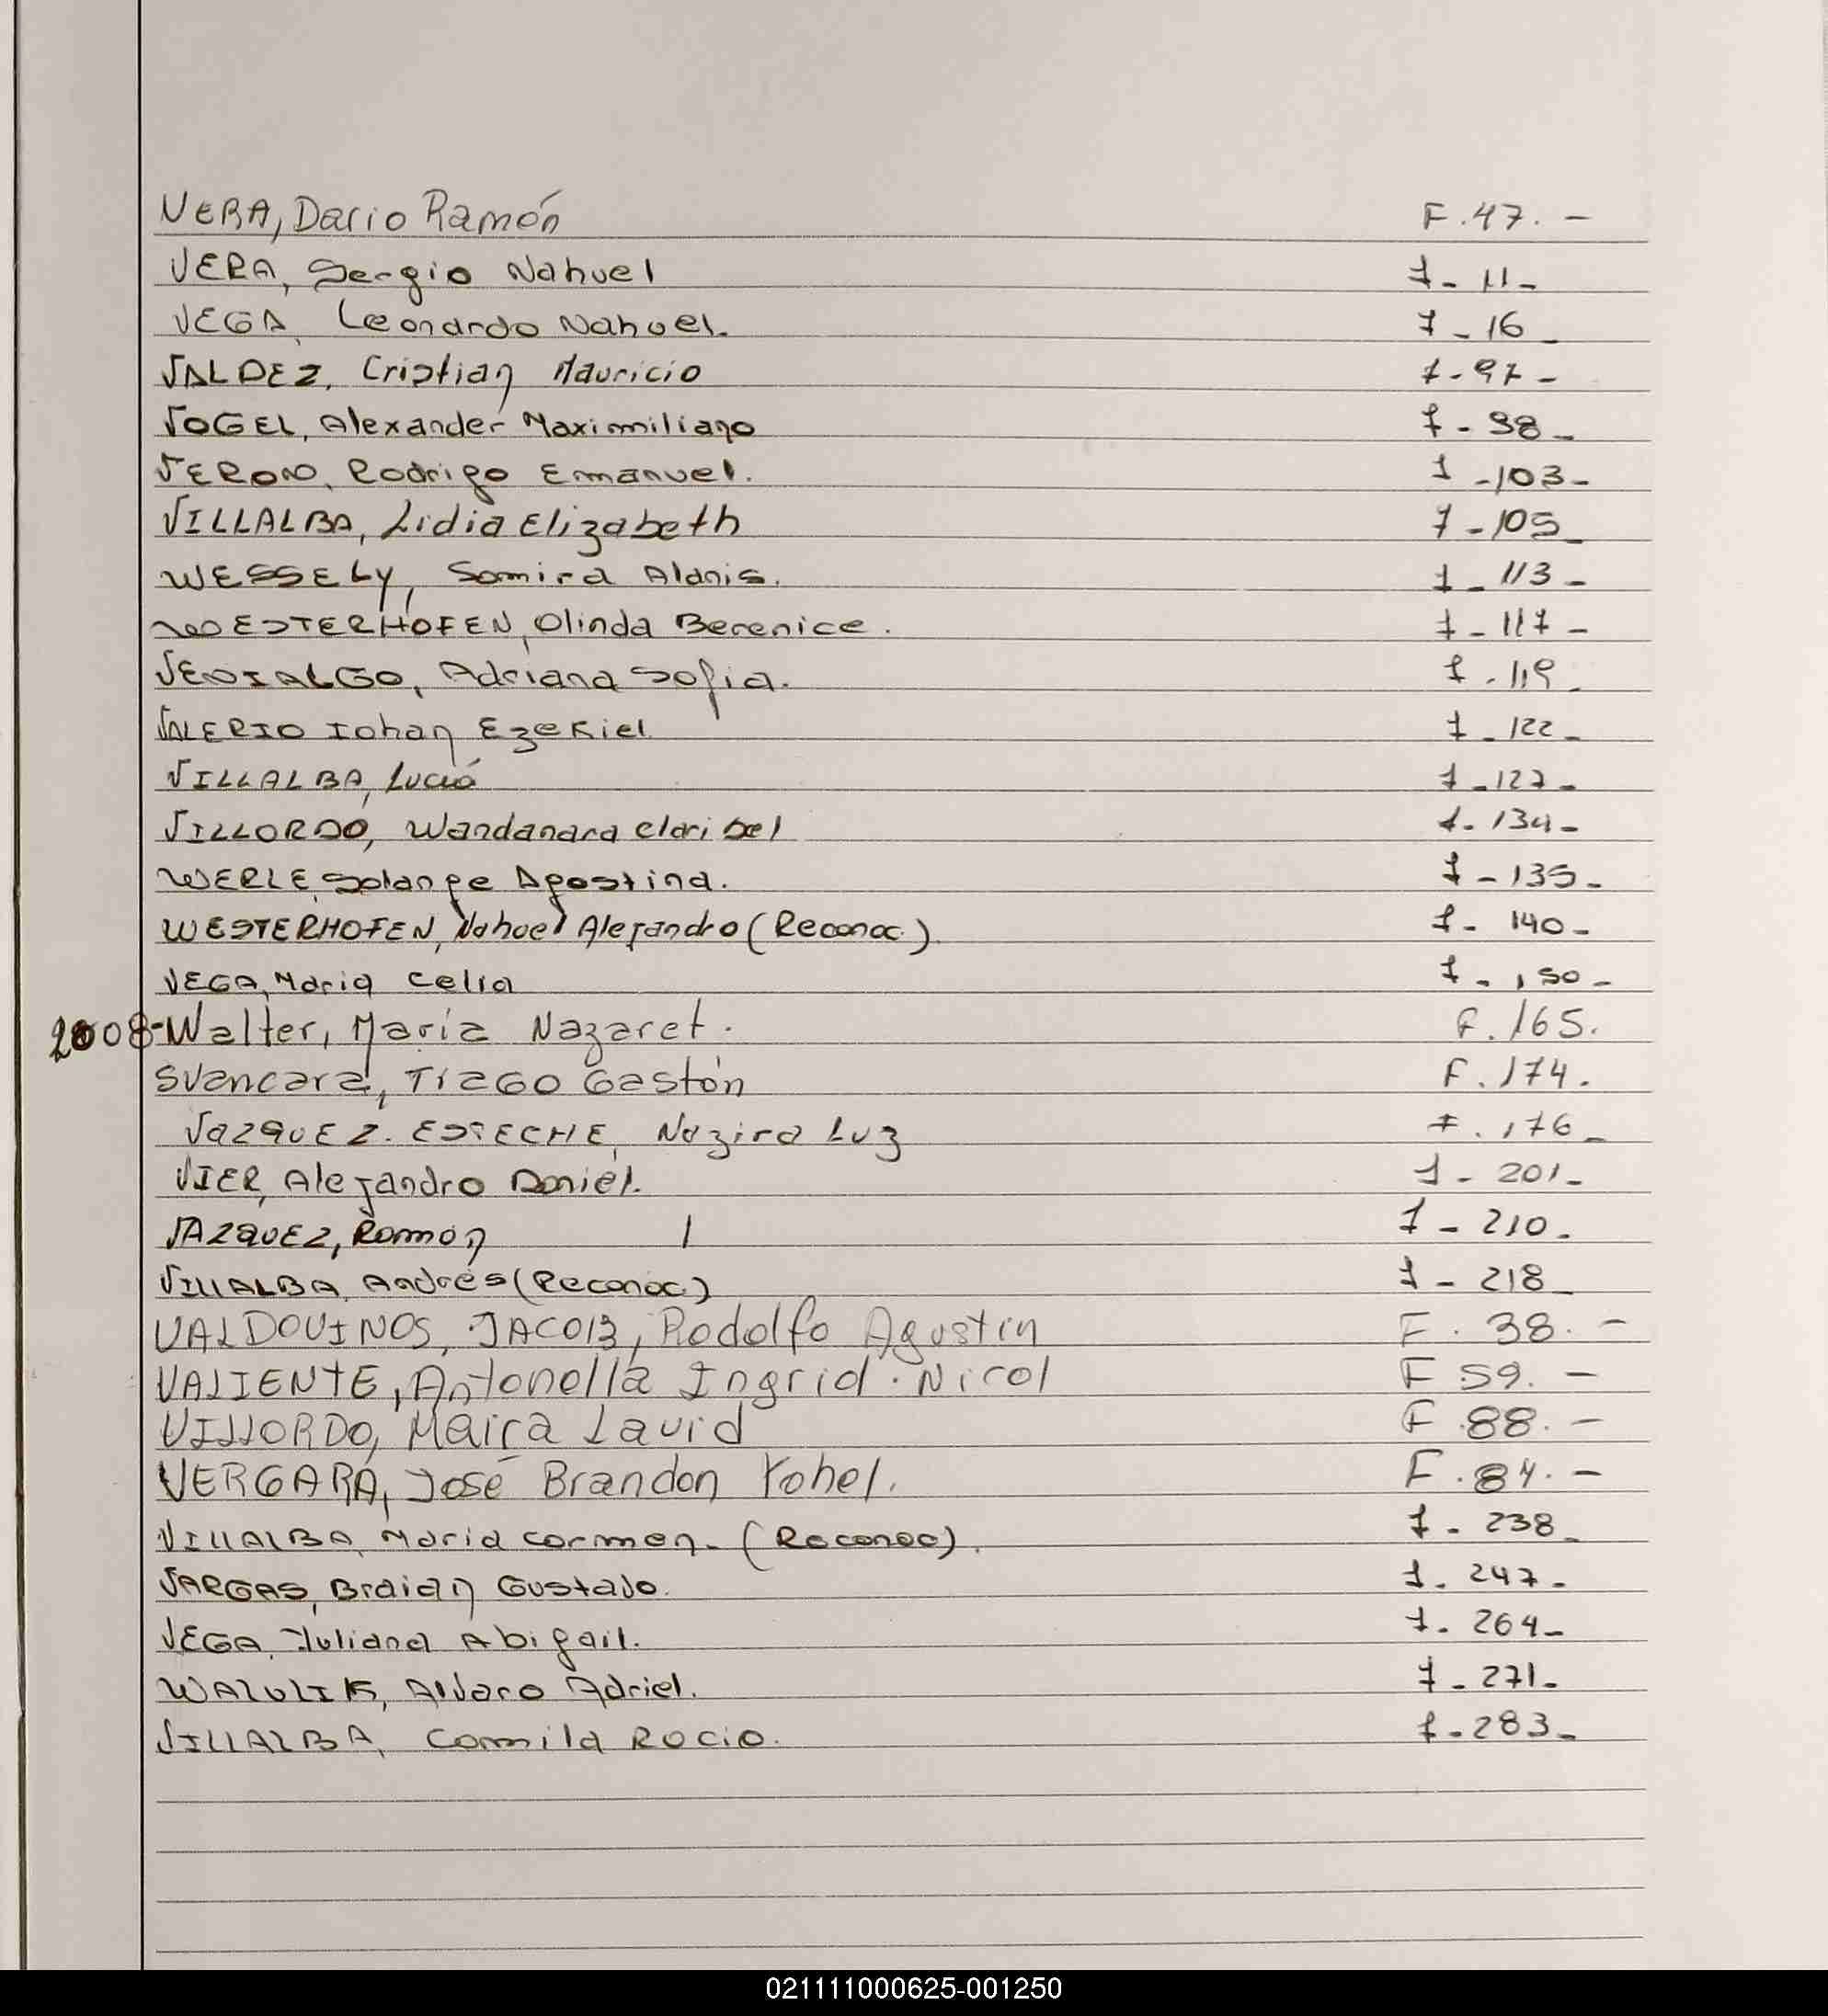 VERA, Dario Ramón F. 47. -
VERA, Sergio Nahuel f - 11 -
VEGA, Leonardo Nahuel. f - 16 -
VALDEZ, Cristian Mauricio f - 97 -
VOGEL, Alexander Maximiliano f - 98 -
VERON, Rodrigo Emanuel. f - 103 -
VILLALBA, Lidia Elizabeth f - 105 -
WESSELY, Samira Aldnis. f - 113 -
WESTERHOFEN, Olinda Berenice. f - 117 -
VENIALGO, Adriana Sofia. f - 119 -
VALERIO Iohan Ezekiel f - 122 -
VILLALBA, f - 127 -
VILLORDO, Wandanara Claribel f - 134 -
WERLE, Solange Agostina. f - 135 -
WESTERHOFEN, Nahuel Alejandro (Reconoc.) f - 140 -
VEGA, Maria Celia f - 150 -
2008-Walter, Maria Nazaret. F. 165.
Svencara, TIAGO Gastón F. 174.
VAZQUEZ. ESTECHE, Nazira Luz F. 176 -
VIER, Alejandro Daniel. f - 201 -
VAZQUEZ, Ramón f - 210 -
VILLALBA, Andrés (Reconoc.) f - 218 -
VALDOVINOS, JACOB, Rodolfo Agustin F. 38. -
VALIENTE, Antonella Ingrid. Nicol F 59. -
VILLORDO, Maira Lavid F. 88. -
VERGARA, José Brandon Yohel. F. 84. -
VILLALBA, Maria Carmen - (Reconoc). f - 238 -
VARGAS, Braian Gustavo. f. 247 -
VEGA, Juliana Abigail. f. 264 -
WALULIK, Alvaro Adriel. f - 271 -
VILLALBA, Camila Rocio. f - 283 -
021111000625-001250